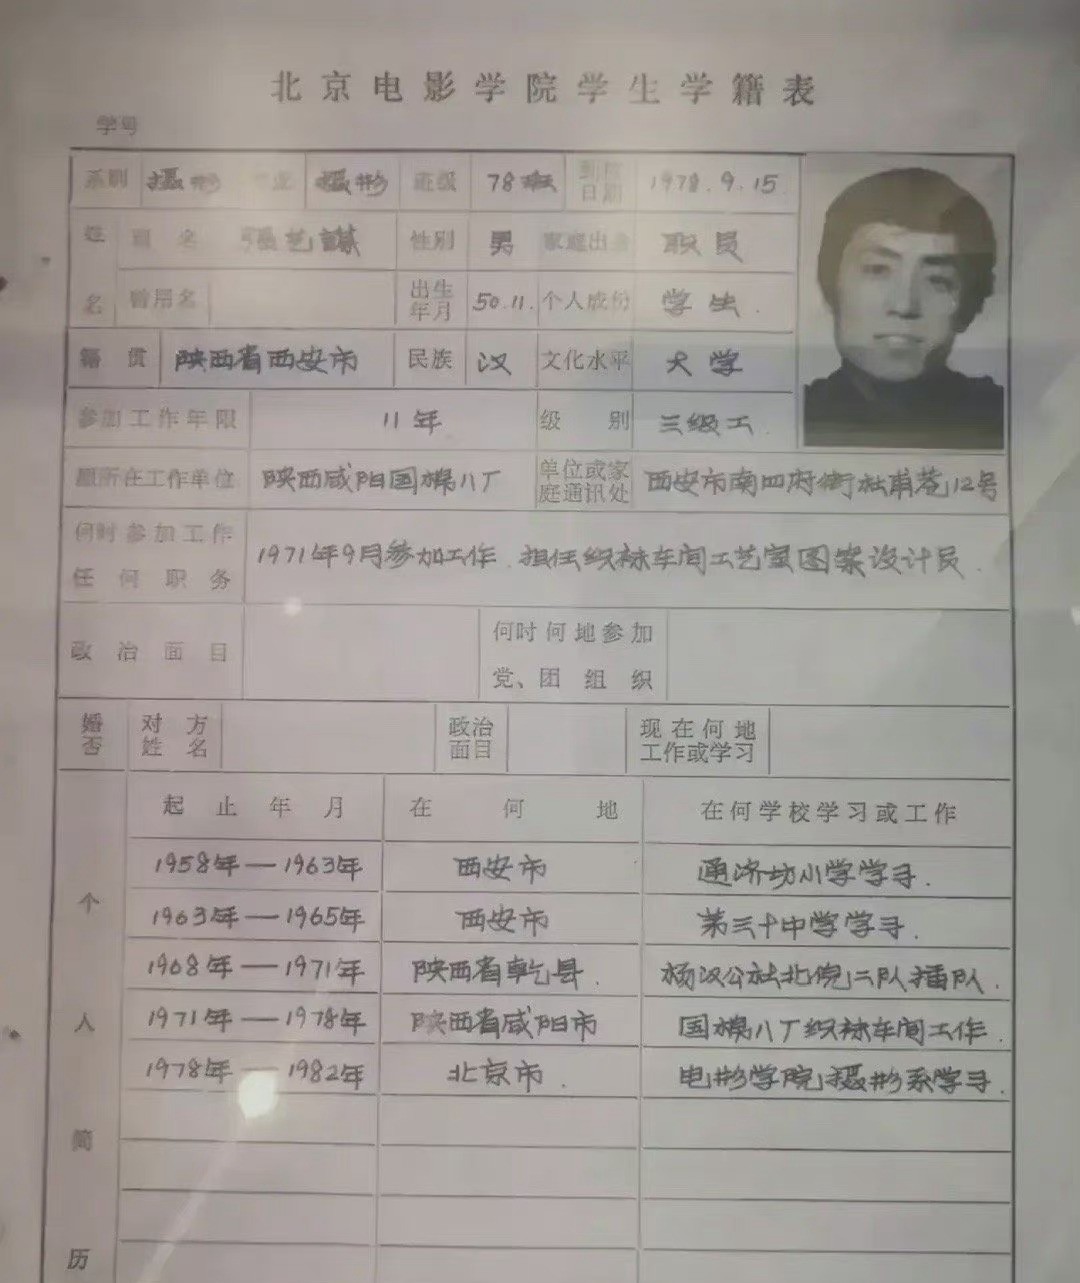 北京电影学院学生学籍表
学号
系别 摄影 专业 摄影 班级 78班 到校日期 1978.9.15
姓名 现名 张艺谋 性别 男 家庭出身 职员
曾用名 出生年月 50.11. 个人成份 学生.
籍贯 陕西省西安市 民族 汉 文化水平 大学
参加工作年限 11年 级别 三级工.
原所在工作单位 陕西咸阳国棉八厂 单位或家庭通讯处 西安市南四府街杜甫巷12号
何时参加工作任何职务 1971年9月参加工作.担任织袜车间工艺室图案设计员.
政治面目 何时何地参加党、团组织
婚否 对方姓名 政治面目 现在何地工作或学习
个人简历
起止年月 在何地 在何学校学习或工作
1958年—1963年 西安市 通济坊小学学习.
1963年—1965年 西安市 第三十中学学习.
1968年—1971年 陕西省乾县. 杨汉公社北倪二队插队.
1971年—1978年 陕西省咸阳市 国棉八厂织袜车间工作.
1978年—1982年 北京市. 电影学院摄影系学习.